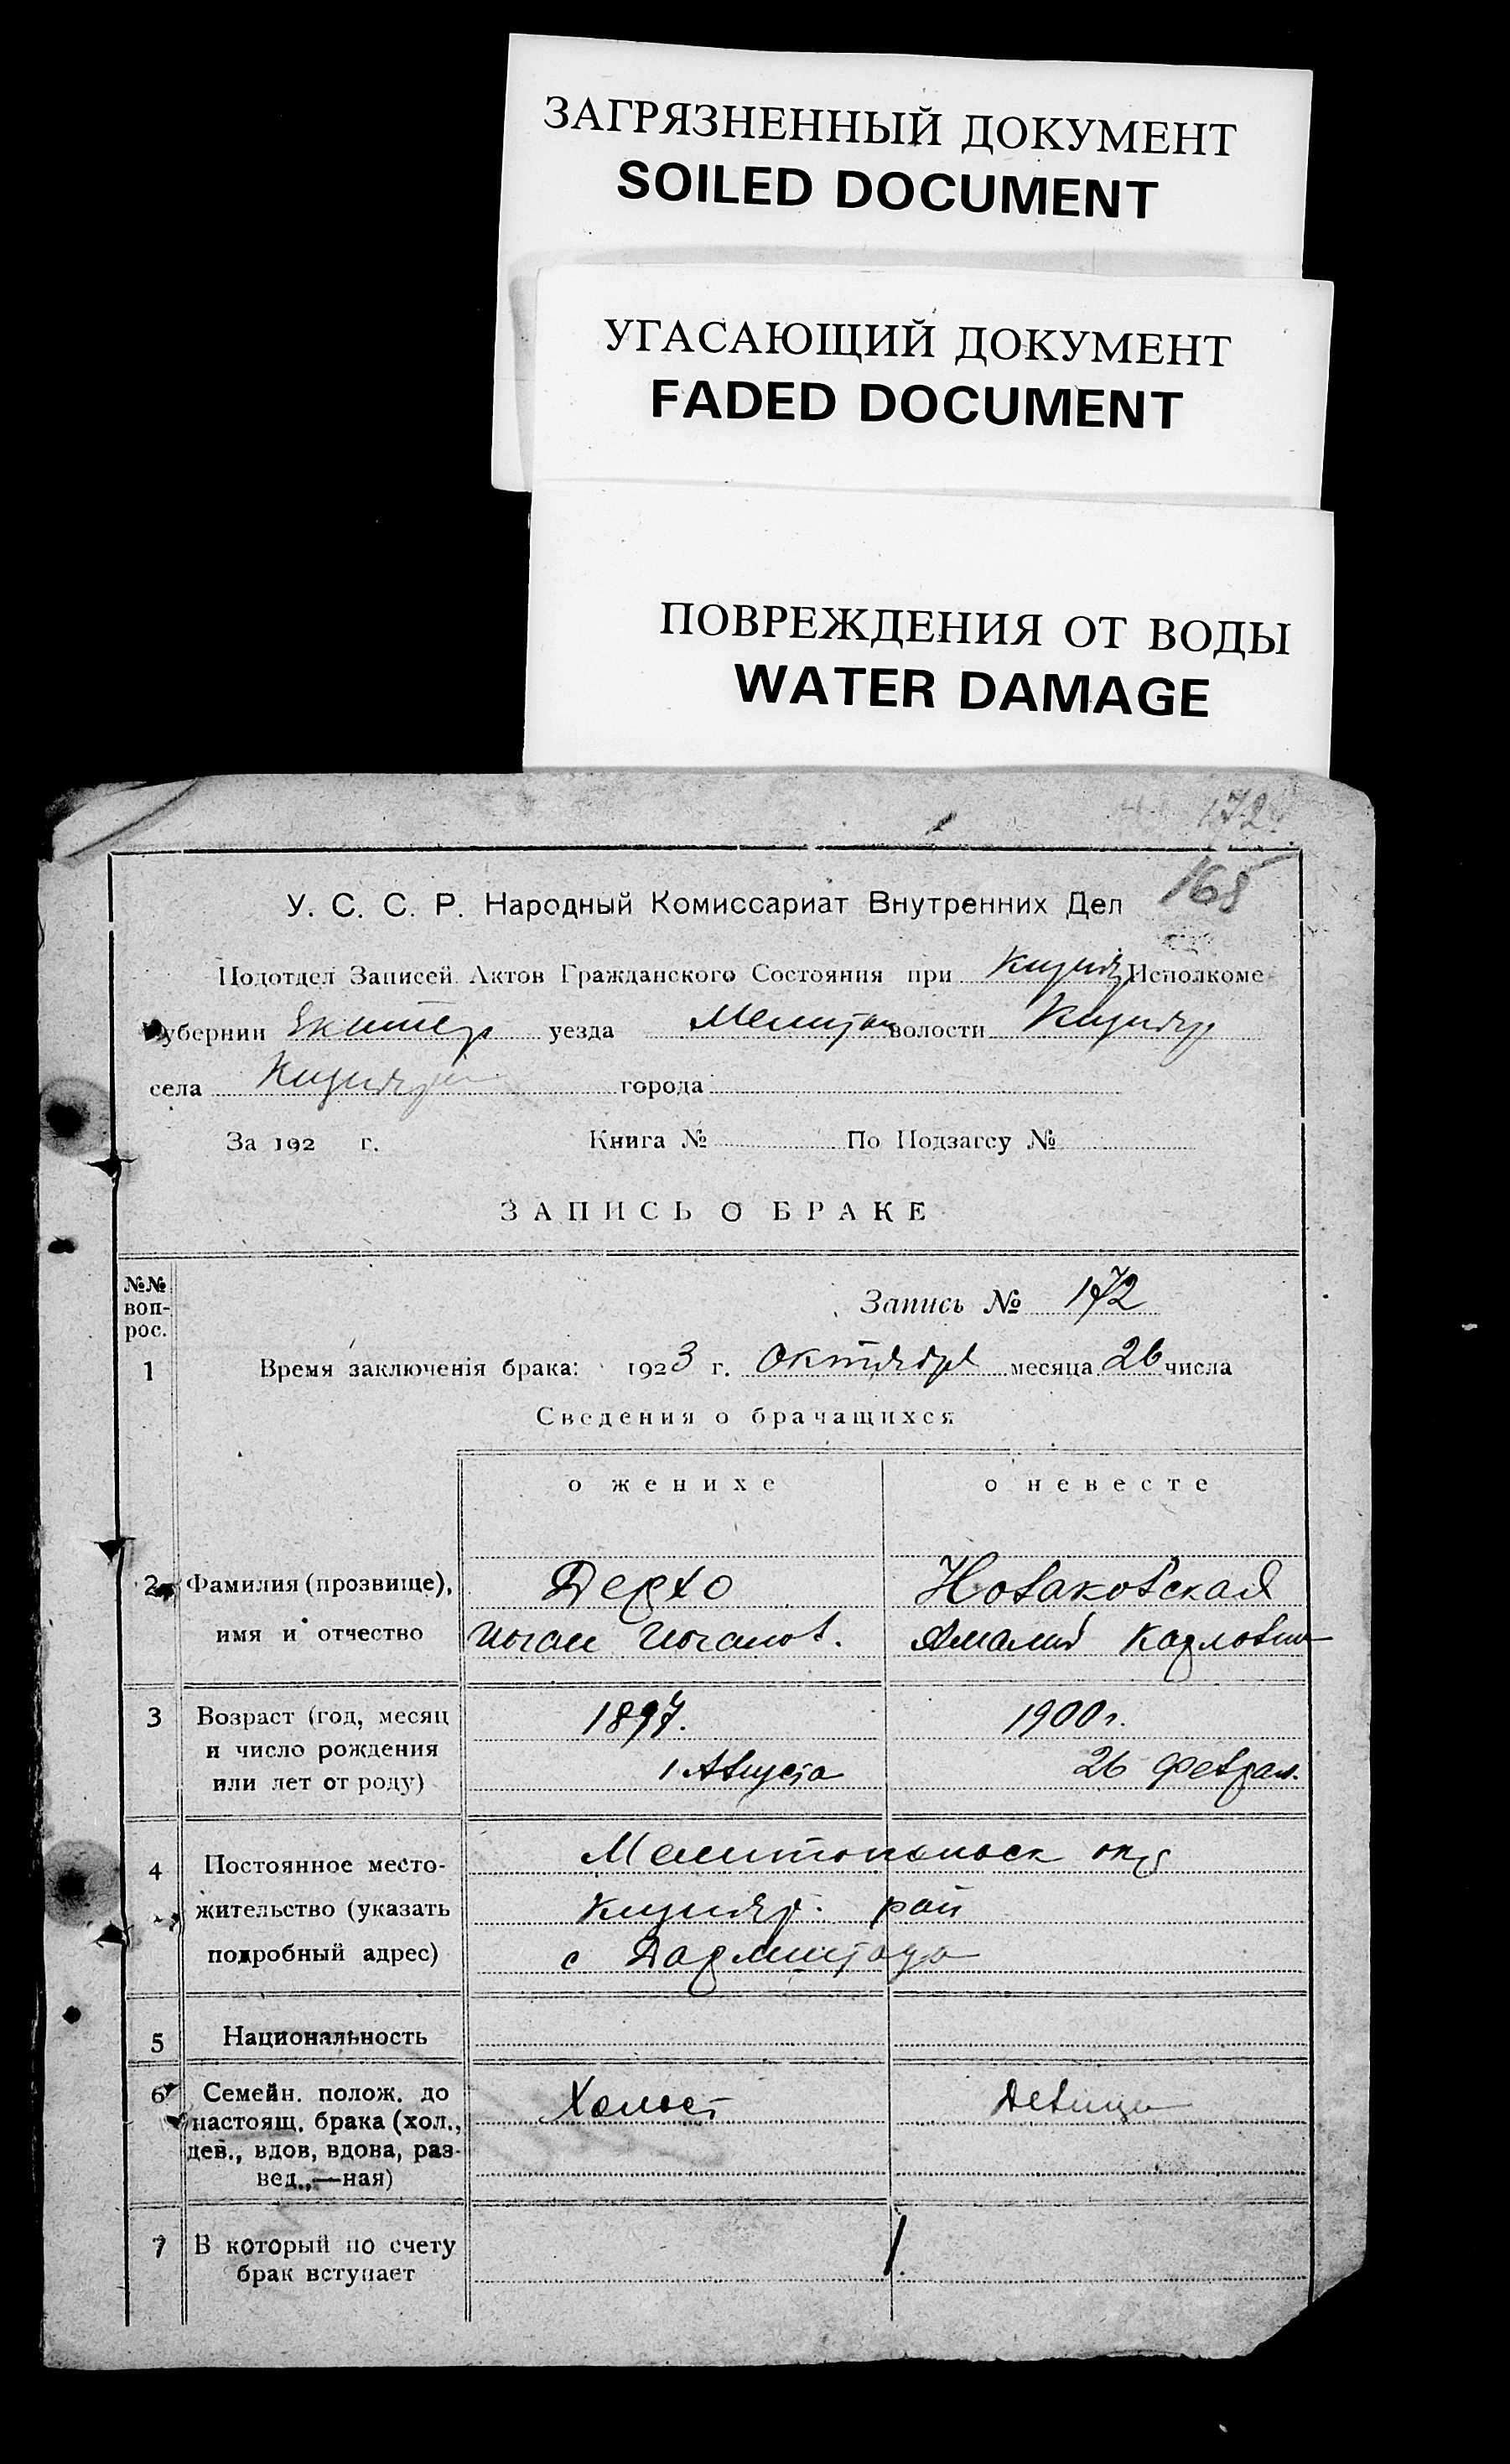 ЗАГРЯЗНЕННЫЙ ДОКУМЕНТ
SOILED DOCUMENT
УГАСАЮЩИЙ ДОКУМЕНТ
FADED DOCUMENT
ПОВРЕЖДЕНИЯ ОТ ВОДЫ
WATER DAMAGE
172
168
У. С. С. Р. Народный Комиссариат Внутренних Дел
Подотдел Записей Актов Гражданского Состояния при Кизияр Исполкоме
Губернии Екатер уезда Мелитоп волости Кизияр
села Кизияр города
За 192 г. Книга № По Подзагсу №
ЗАПИСЬ О БРАКЕ
№№ воп-рос.
Запись № 172
1 Время заключенія брака: 1923 г. Октября месяца 26 числа
Сведения о брачащихся
о женихе о невесте
2 Фамилия (прозвище), Дерхо Новаковская
имя и отчество Иоган Иоганов. Амалия Карловна
3 Возраст (год, месяц 1897. 1900 г.
и число рождения
или лет от роду) 1 Августа 26 Феврал.
4 Постоянное место- Мелитопольск окр
жительство (указать Кизияр. рай
подробный адрес) с Дармштадт
5 Национальность
6 Семейн. полож. до Холост Девица
настоящ. брака (хол.,
дев., вдов, вдова, раз-
вед.,—ная)
7 В который по счету 1.
брак вступает